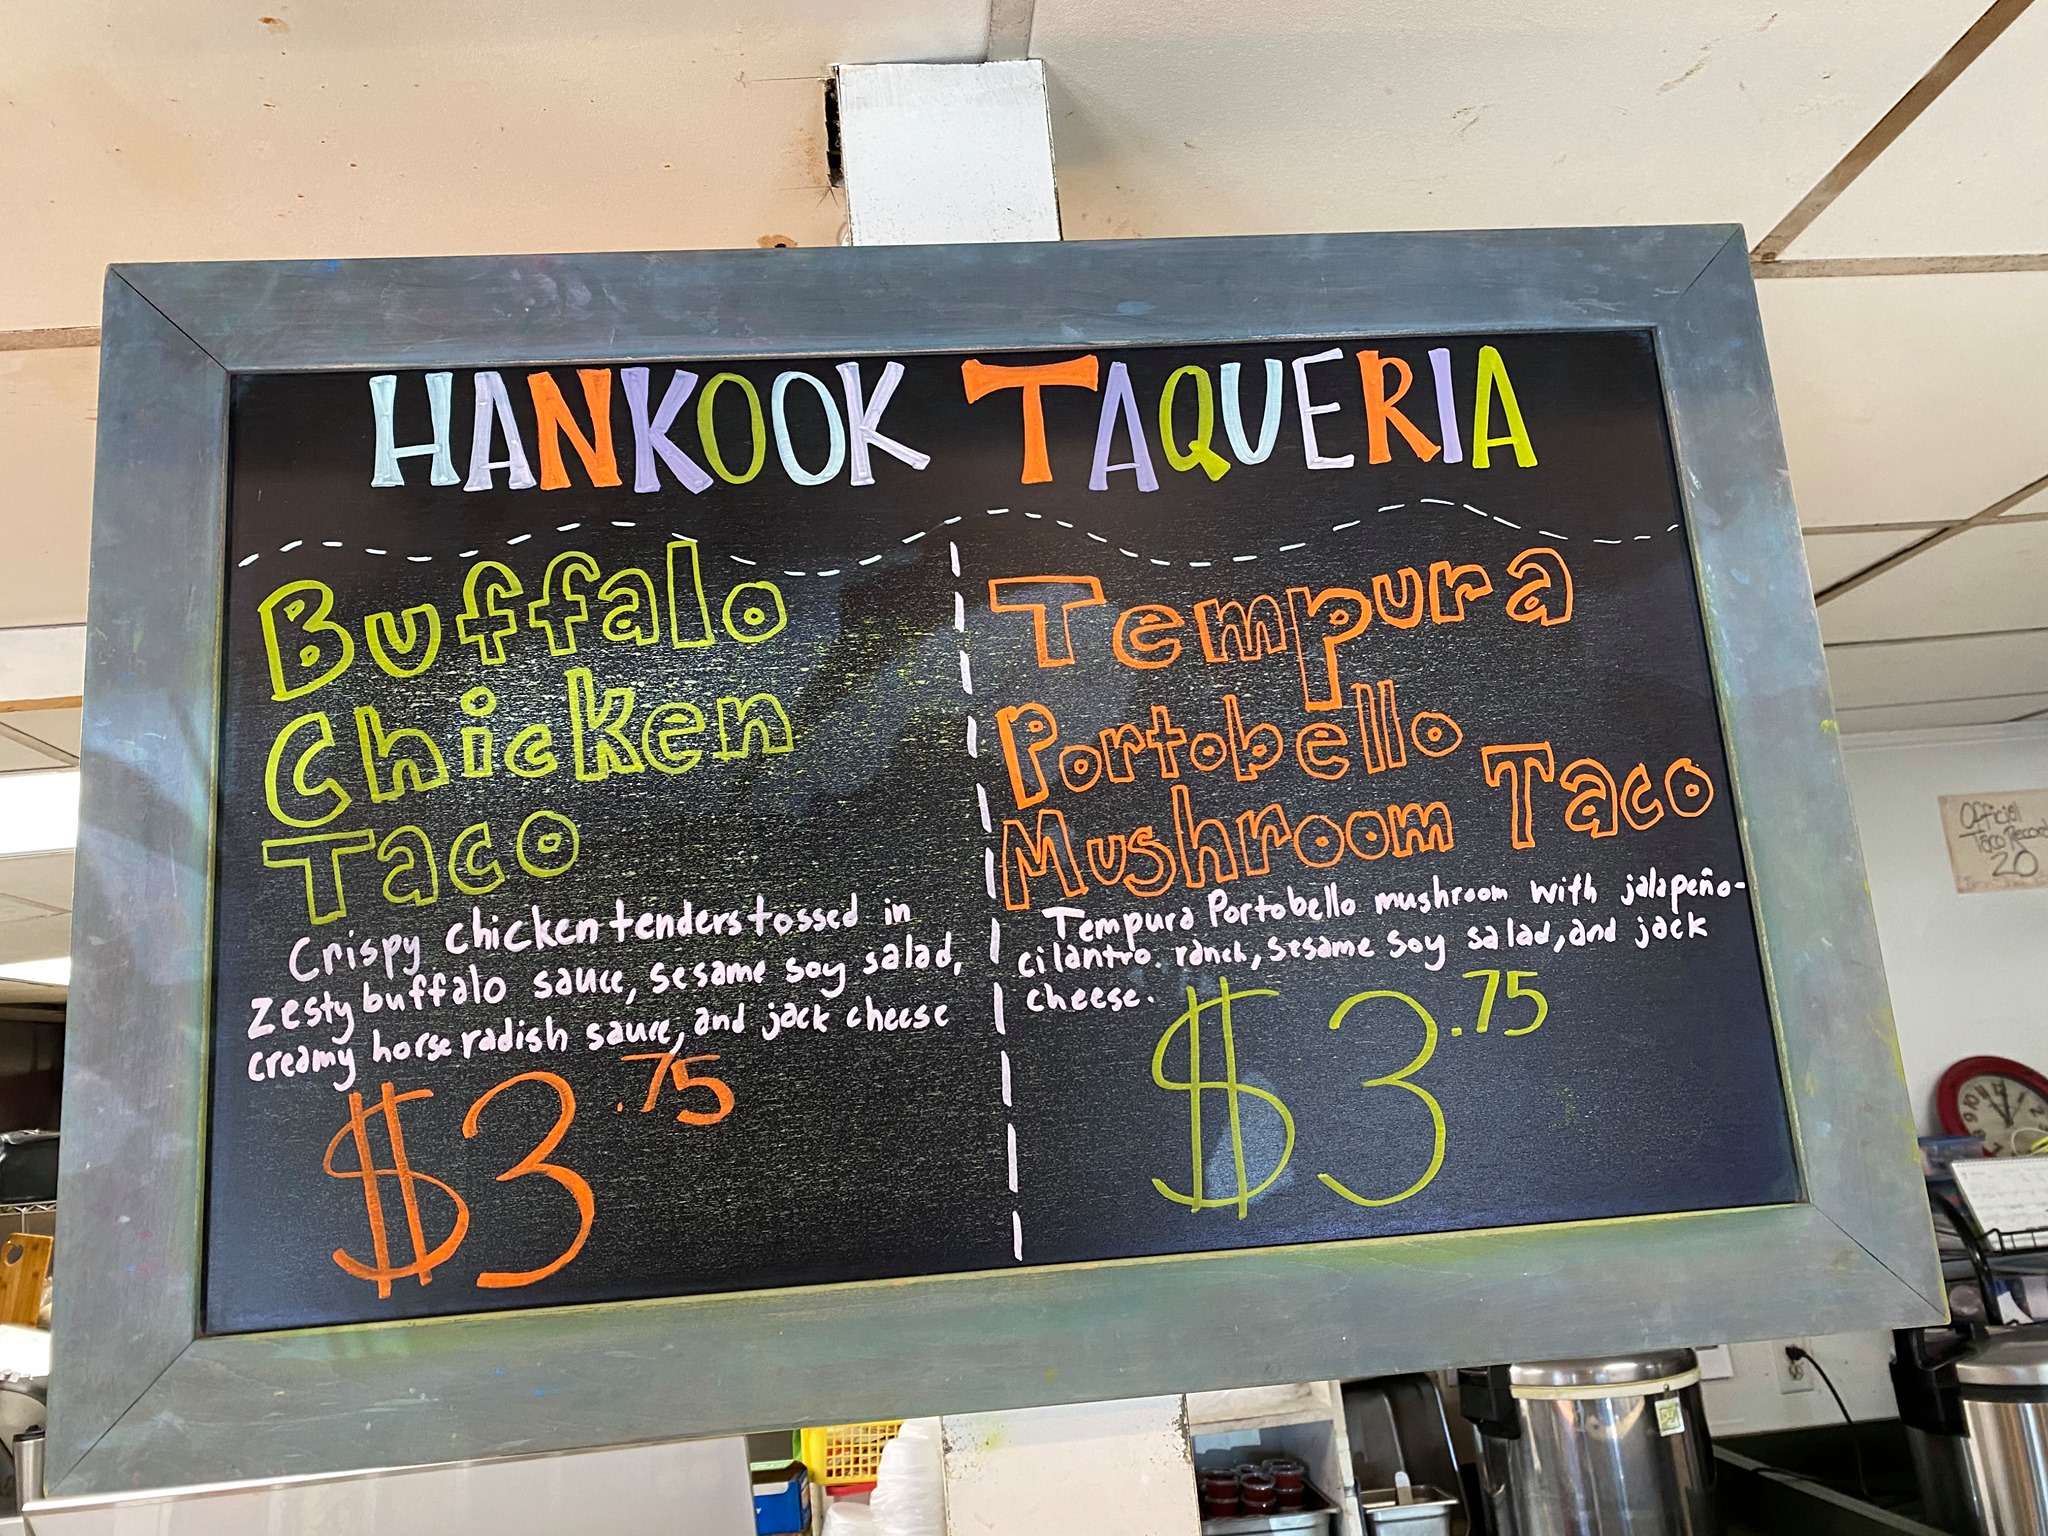 HANKOOK TAQUERIA
Buffalo
Chicken
Taco
Crispy chicken tenders tossed in
zesty buffalo sauce, sesame soy salad,
creamy horseradish sauce, and jack cheese
$3.75
Tempura
Portobello
Mushroom Taco
Tempura Portobello mushroom with jalapeño-
cilantro. ranch, sesame soy salad, and jack
cheese.
$3.75
Official
Taco Record
20